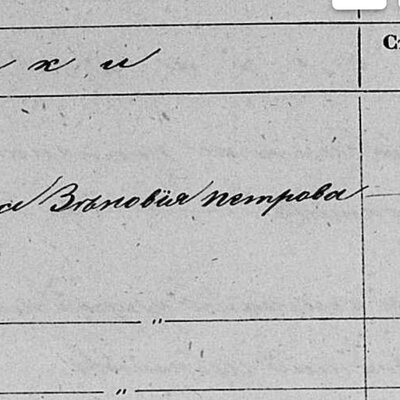 х и
Зѣновія петрова